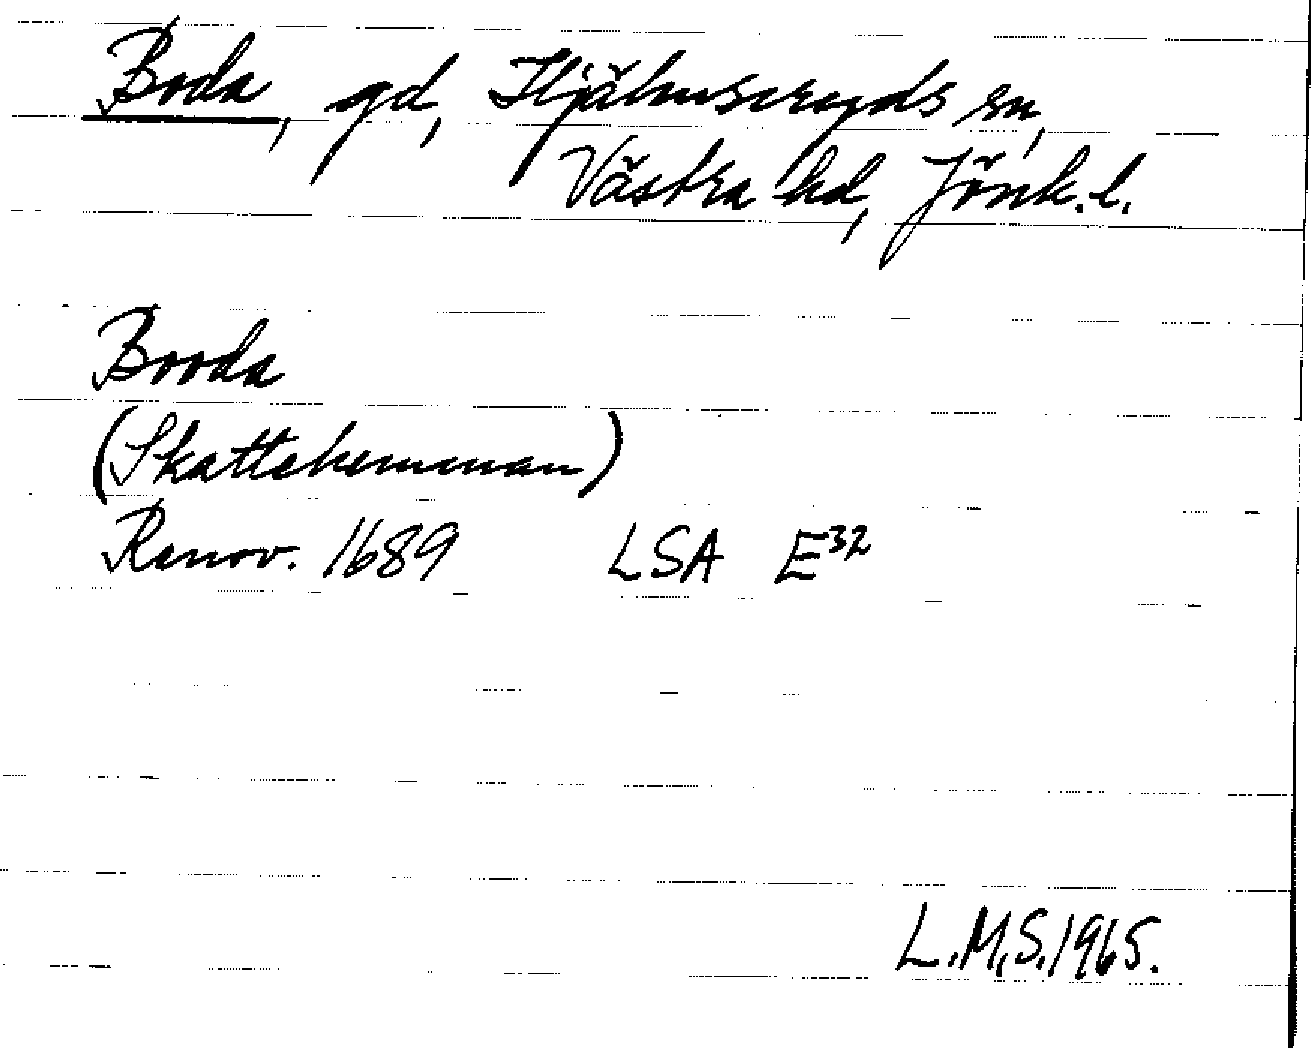 Boda, gd, Hjälmseryds sn,
Västra hd, Jönk. l.
Booda
(Skattehemman)
Renov. 1689 LSA E³²
L.M.S. 1965.